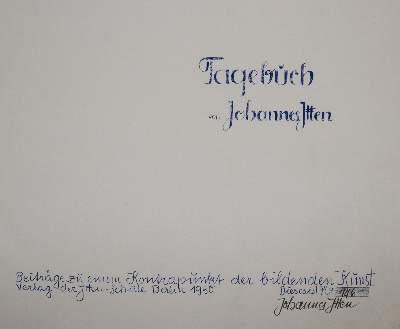 Tagebuch
von Johannes Itten
Beiträge zu einem Kontrapunkt der bildenden Kunst
Verlag der Itten-Schule Berlin 1930
Dieses ist Nr.
Johannes Itten